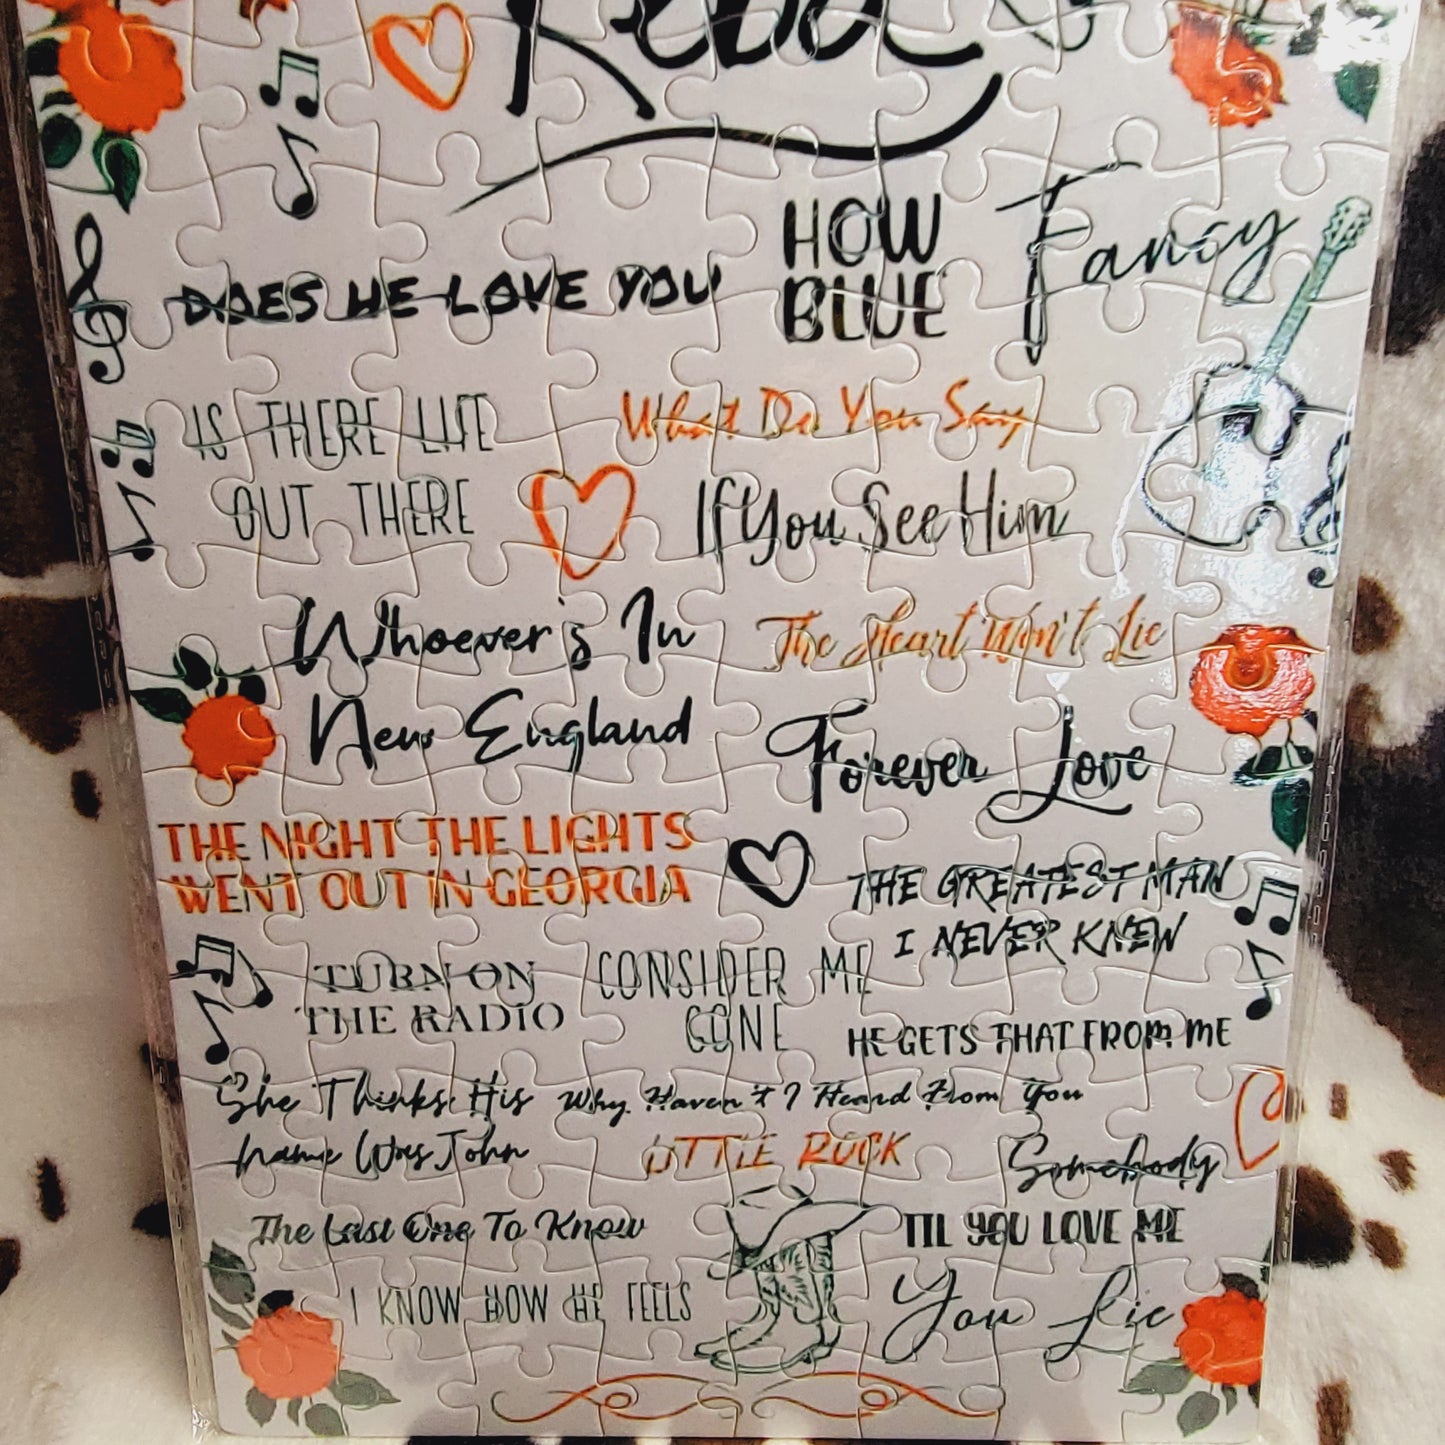 Reba
HOW
BLUE
Fancy
DOES HE LOVE YOU
IS THERE LIFE
OUT THERE
What Do You Say
If You See Him
Whoever's In
New England
The Heart Won't Lie
Forever Love
THE NIGHT THE LIGHTS
WENT OUT IN GEORGIA
THE GREATEST MAN
I NEVER KNEW
TURN ON
THE RADIO
CONSIDER ME
GONE
HE GETS THAT FROM ME
She Thinks His
Name Was John
Why Haven't I Heard From You
LITTLE ROCK
Somebody
The Last One To Know
TIL YOU LOVE ME
I KNOW HOW HE FEELS
You Lie